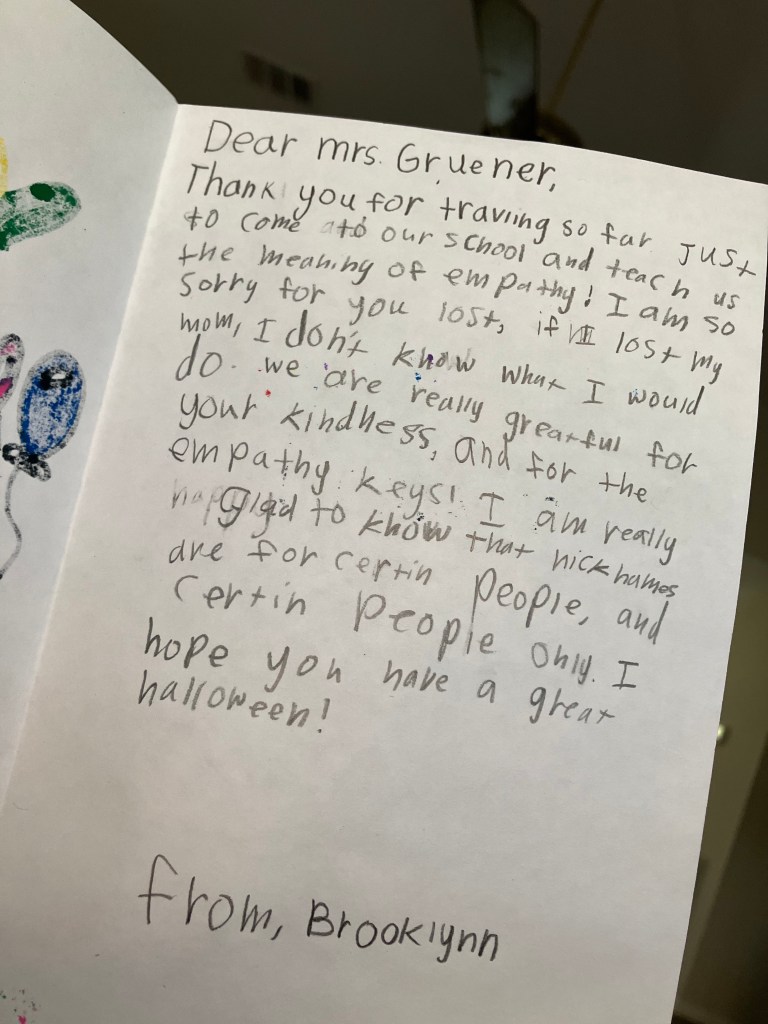 Dear mrs. Gruener,
Thank you for travling so far just
to come to our school and teach us
the meaning of empathy! I am so
sorry for you lost, if I lost my
mom, I don't know what I would
do. we are really greatful for
your kindness, and for the
empathy keys! I am really
glad to know that nicknames
are for certin people, and
certin people only. I
hope you have a great
halloween!
from, Brooklynn